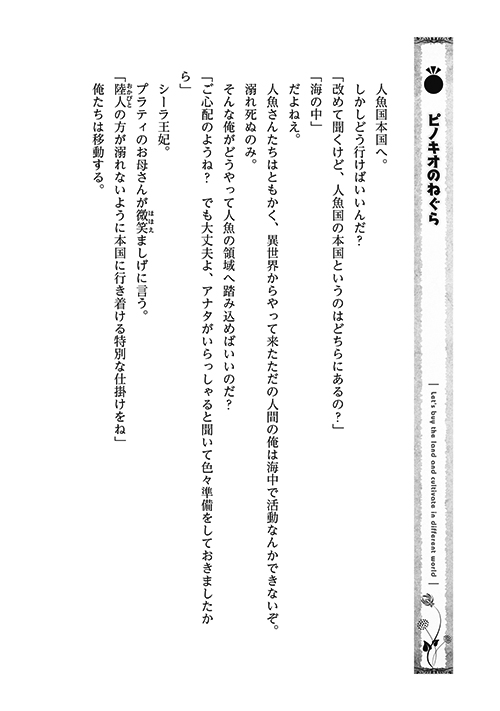 ピノキオのねぐら
Let's buy the land and cultivate in different world
人魚国本国へ。
しかしどう行けばいいんだ？
「改めて聞くけど、人魚国の本国というのはどちらにあるの？」
「海の中」
だよねえ。
人魚さんたちはともかく、異世界からやって来たただの人間の俺は海中で活動なんかできないぞ。
溺れ死ぬのみ。
そんな俺がどうやって人魚の領域へ踏み込めばいいのだ？
「ご心配のようね？　でも大丈夫よ、アナタがいらっしゃると聞いて色々準備をしておきましたか
ら」
シーラ王妃。
プラティのお母さんが微笑ましげに言う。
ほほえ
「陸人の方が溺れないように本国に行き着ける特別な仕掛けをね」
おかびと
俺たちは移動する。